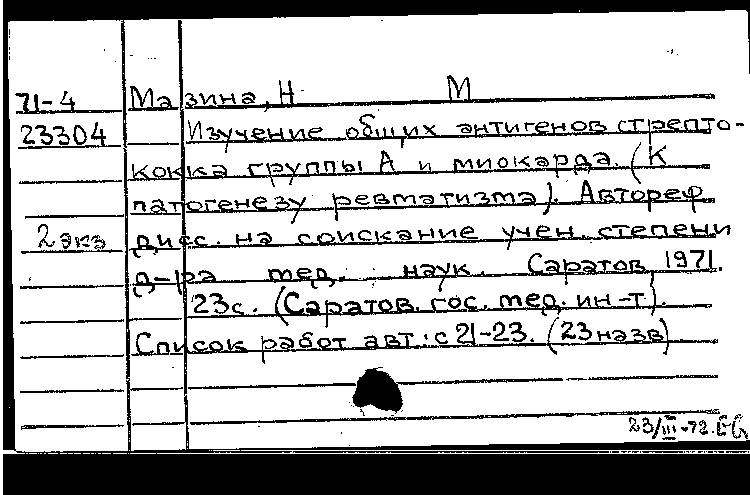 71-4 Мазина, Н М
23304 Изучение общих антигенов стрепто-
кокка группы А и миокарда. (К
патогенезу ревматизма). Автореф
2 экз дисс. на соискание учен. степени
д-ра мед. наук. Саратов, 1971.
23с. (Саратов. гос. мед. ин-т).
Список работ авт.: с 21-23. (23 назв)
23/III-72.